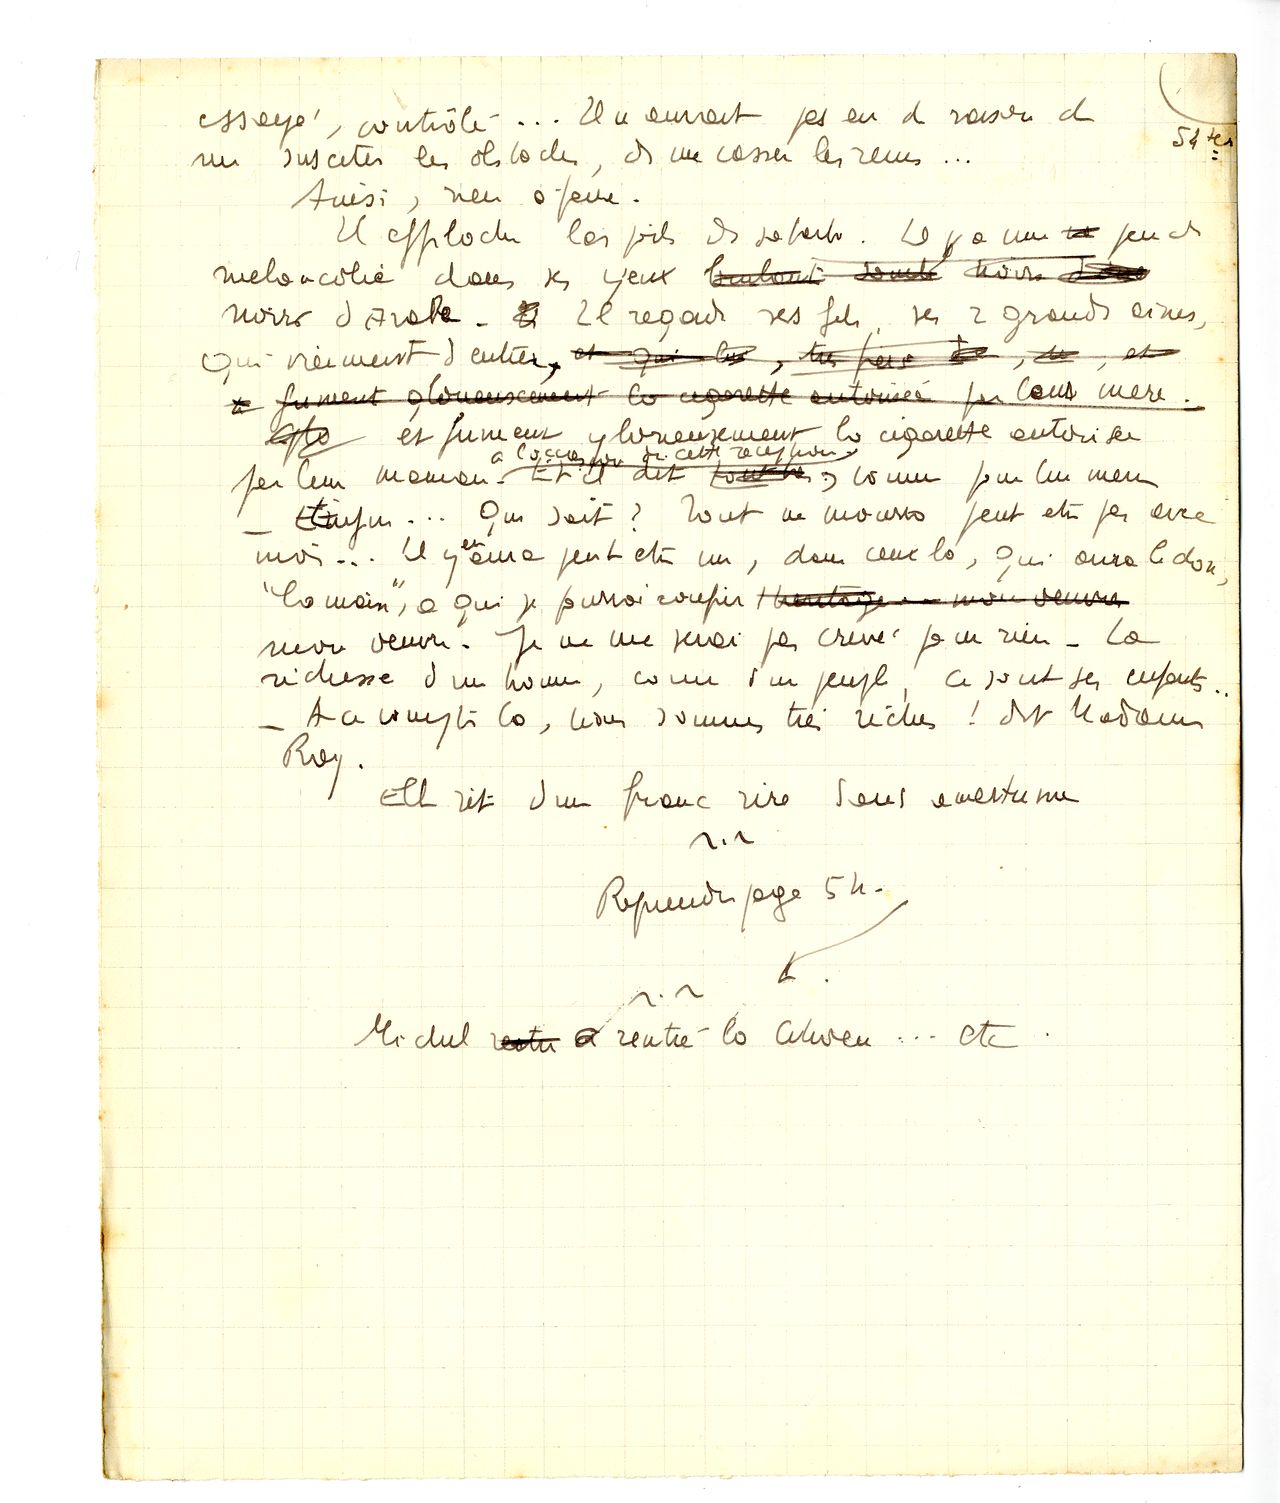 54 ter
essayé, contrôlé ... Il n'aurait pas eu de raison de
me susciter les obstacles, de me casser les reins ...
Ainsi, rien à faire.
Il effiloche les poils de sa barbe. Il y a un peu de
mélancolie dans ses yeux brûlants noirs
noirs d'Arabe. Il regarde ses fils, ses 2 grands aînés,
qui viennent d'entrer, et qui
fument glorieusement la cigarette autorisée par leur mère.
et fument glorieusement la cigarette autorisée
à l'occasion de cette réception.
par leur maman. Et il dit, comme pour lui-même
_ Enfin ... Qui sait ? Tout ne mourra peut être pas avec
moi ... Il y en aura peut être un, dans ceux là, qui aura le don,
"la main", à qui je pourrai confier l'héritage ... mon oeuvre
mon oeuvre. Je ne me serai pas crevé pour rien _ La
richesse d'un homme, comme d'un peuple, ce sont ses enfants ..
_ A ce compte là, nous sommes très riches ! dit Madame
Roy.
Elle rit d'un franc rire sans amertume
Reprendre page 54.
Michel rentre a rentré la Citroën ... etc.